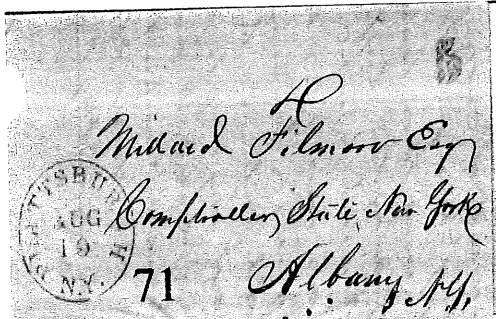 Millard Filmore Esq
Comptroller State New York
Albany N.Y.
PLATTSBURGH
AUG
19
N.Y.
71